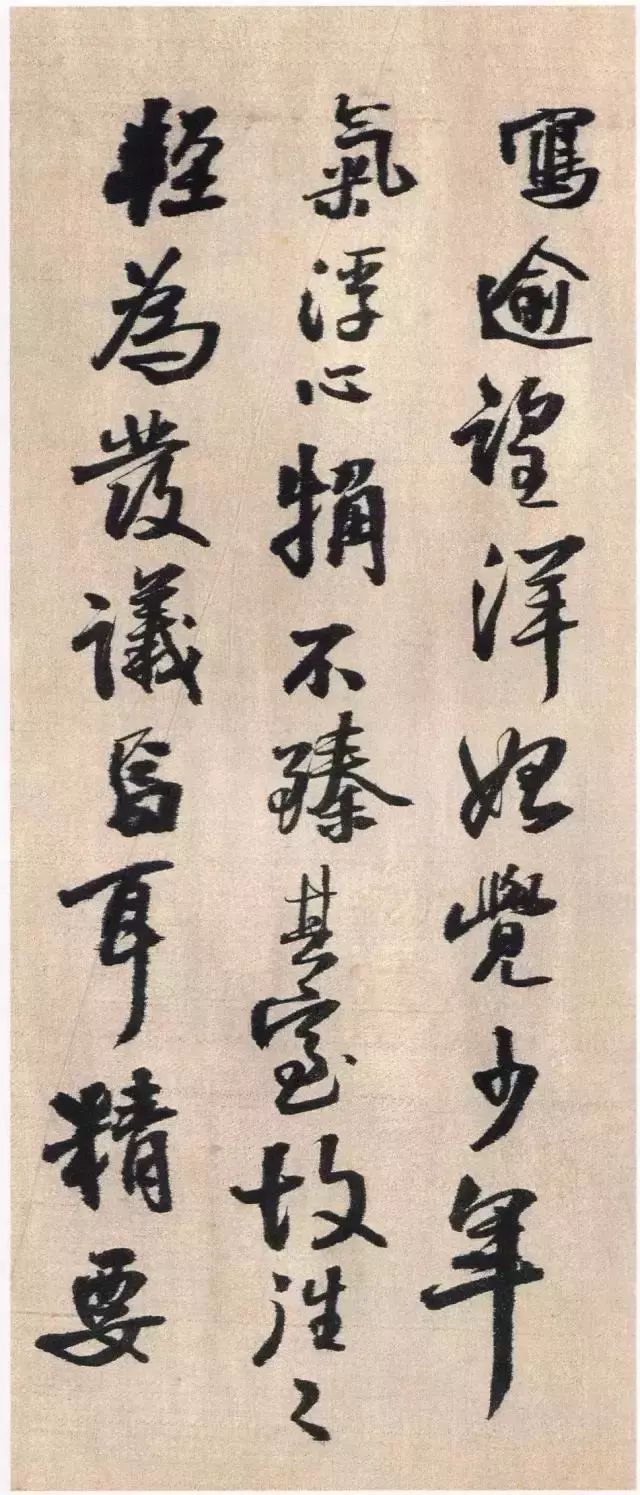 寫逾望洋始覺少年
氣浮心觕不臻其室故往々
輕為發議耳精要